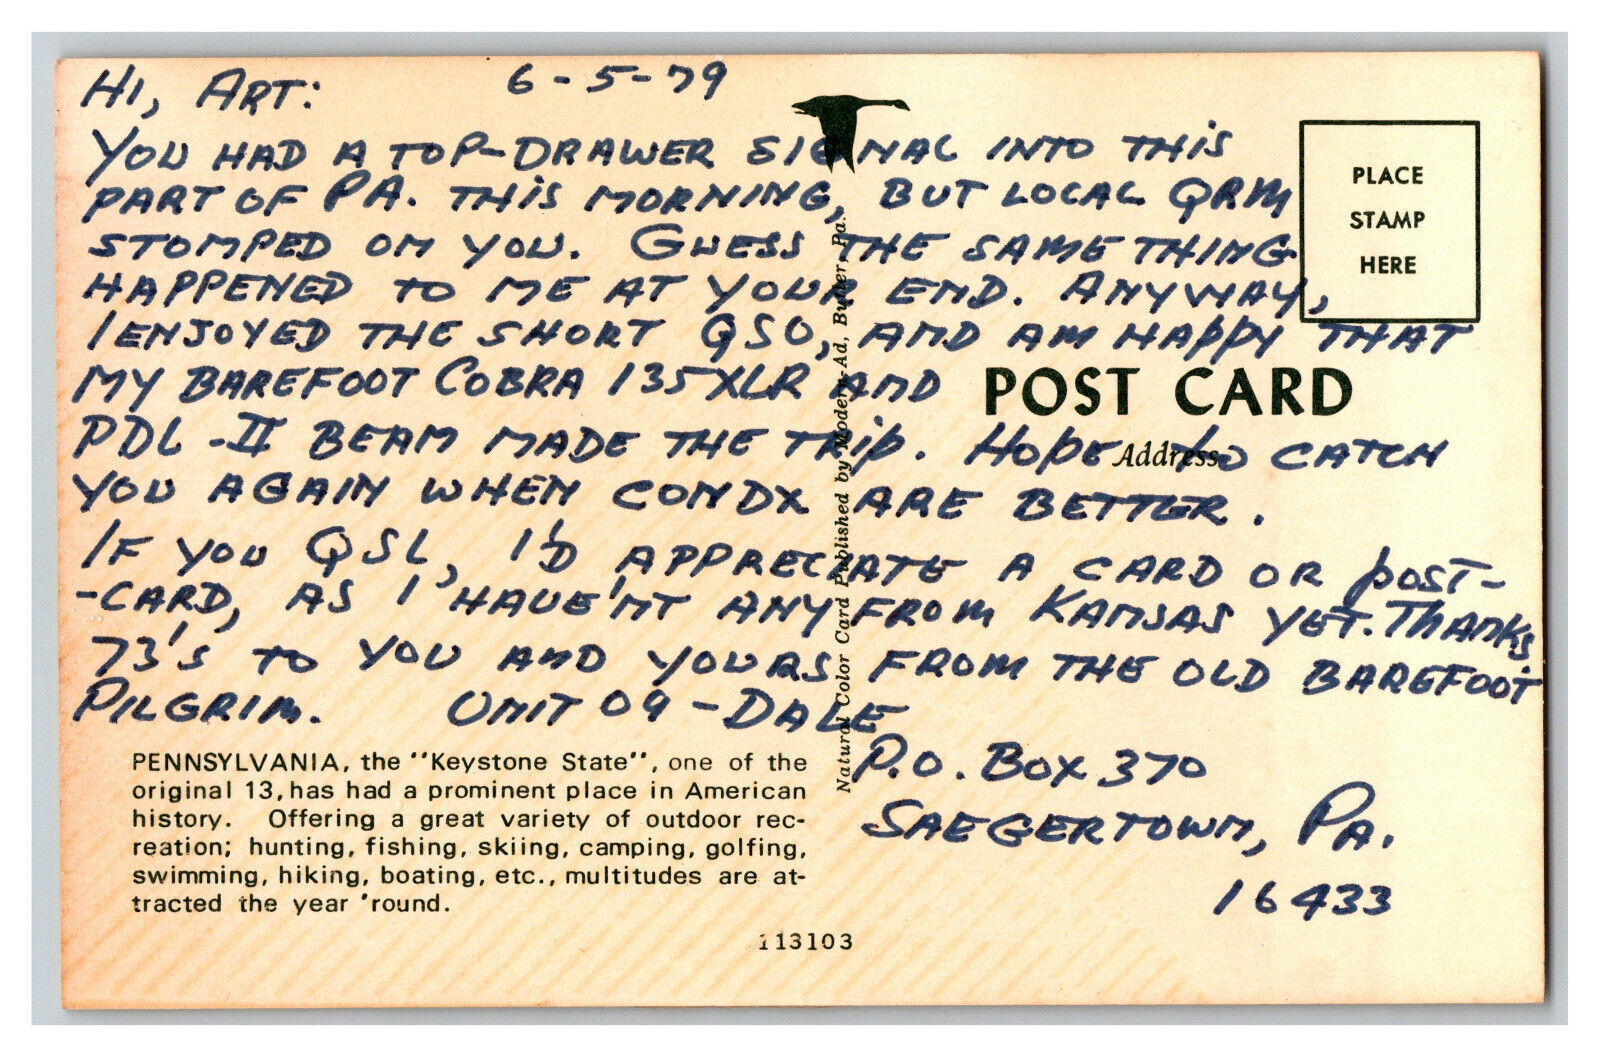 HI, ART: 6-5-79
YOU HAD A TOP-DRAWER SIGNAL INTO THIS
PART OF PA. THIS MORNING, BUT LOCAL QRM
STOMPED ON YOU. GUESS THE SAME THING
HAPPENED TO ME AT YOUR END. ANYWAY,
I ENJOYED THE SHORT QSO, AND AM HAPPY THAT
MY BAREFOOT COBRA 135XLR AND
PDL-II BEAM MADE THE TRIP. HOPE TO CATCH
YOU AGAIN WHEN CONDX ARE BETTER.
IF YOU QSL, I'D APPRECIATE A CARD OR POST-
-CARD, AS I HAVE'NT ANY FROM KANSAS YET. THANKS
73'S TO YOU AND YOURS FROM THE OLD BAREFOOT
PILGRIM. UNIT 09 - DALE
P.O. BOX 370
SAEGERTOWN, PA.
16433
PLACE
STAMP
HERE
POST CARD
Address
Natural Color Card Published by Modern-Ad, Butler, Pa.
PENNSYLVANIA, the "Keystone State", one of the
original 13, has had a prominent place in American
history. Offering a great variety of outdoor rec-
reation; hunting, fishing, skiing, camping, golfing,
swimming, hiking, boating, etc., multitudes are at-
tracted the year 'round.
113103